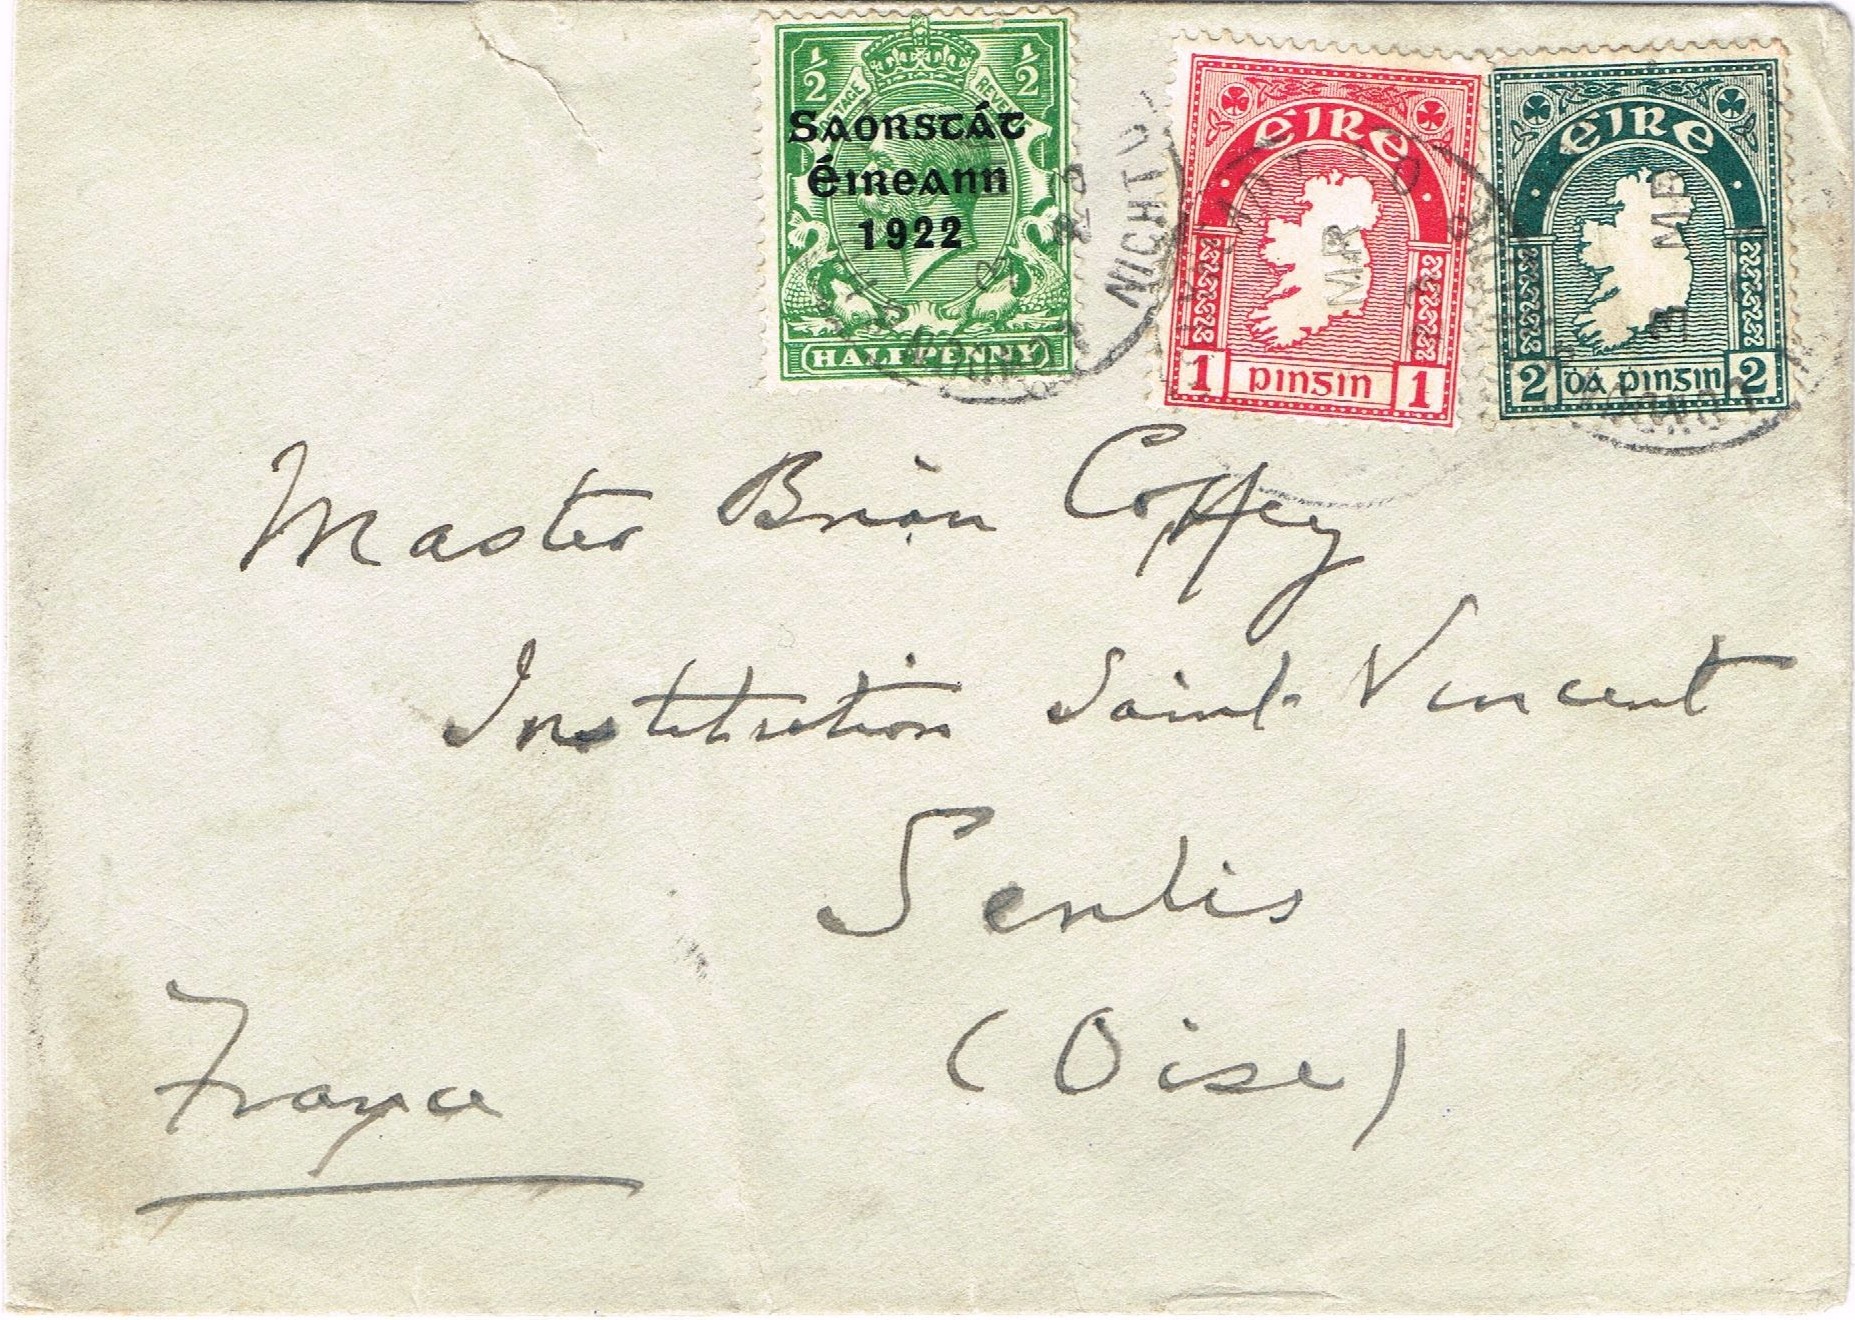 ½ ½
POSTAGE REVENUE
Saorstát
Éireann
1922
HALFPENNY
éire
1 pingin 1
éire
2 dá pingin 2
MR
3 MR
23
Master Brian Coffey
Institution Saint-Vincent
Senlis
(Oise)
France